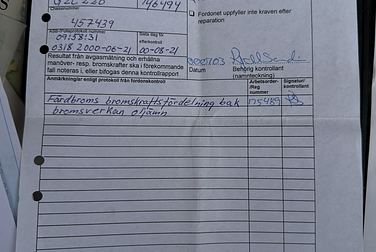 S
GZC 220
146494
Fordonet uppfyller inte kraven efter
reparation
457439
09:58:31
0318 2000-06-21
Sista dag för
efterkontroll
00-08-21
Resultat från avgasmätning och erhållna
manöver- resp. bromskrafter ska i förekommande
fall noteras i, eller bifogas denna kontrollrapport
000703
Datum
Behörig kontrollant
(namnteckning)
Anmärkningar enligt protokoll från fordonskontroll
Arbetsorder-
/Reg
nummer
Signatur/
kontrollant
Färdbroms bromskraftsfördelning bak
bromsverkan ojämn